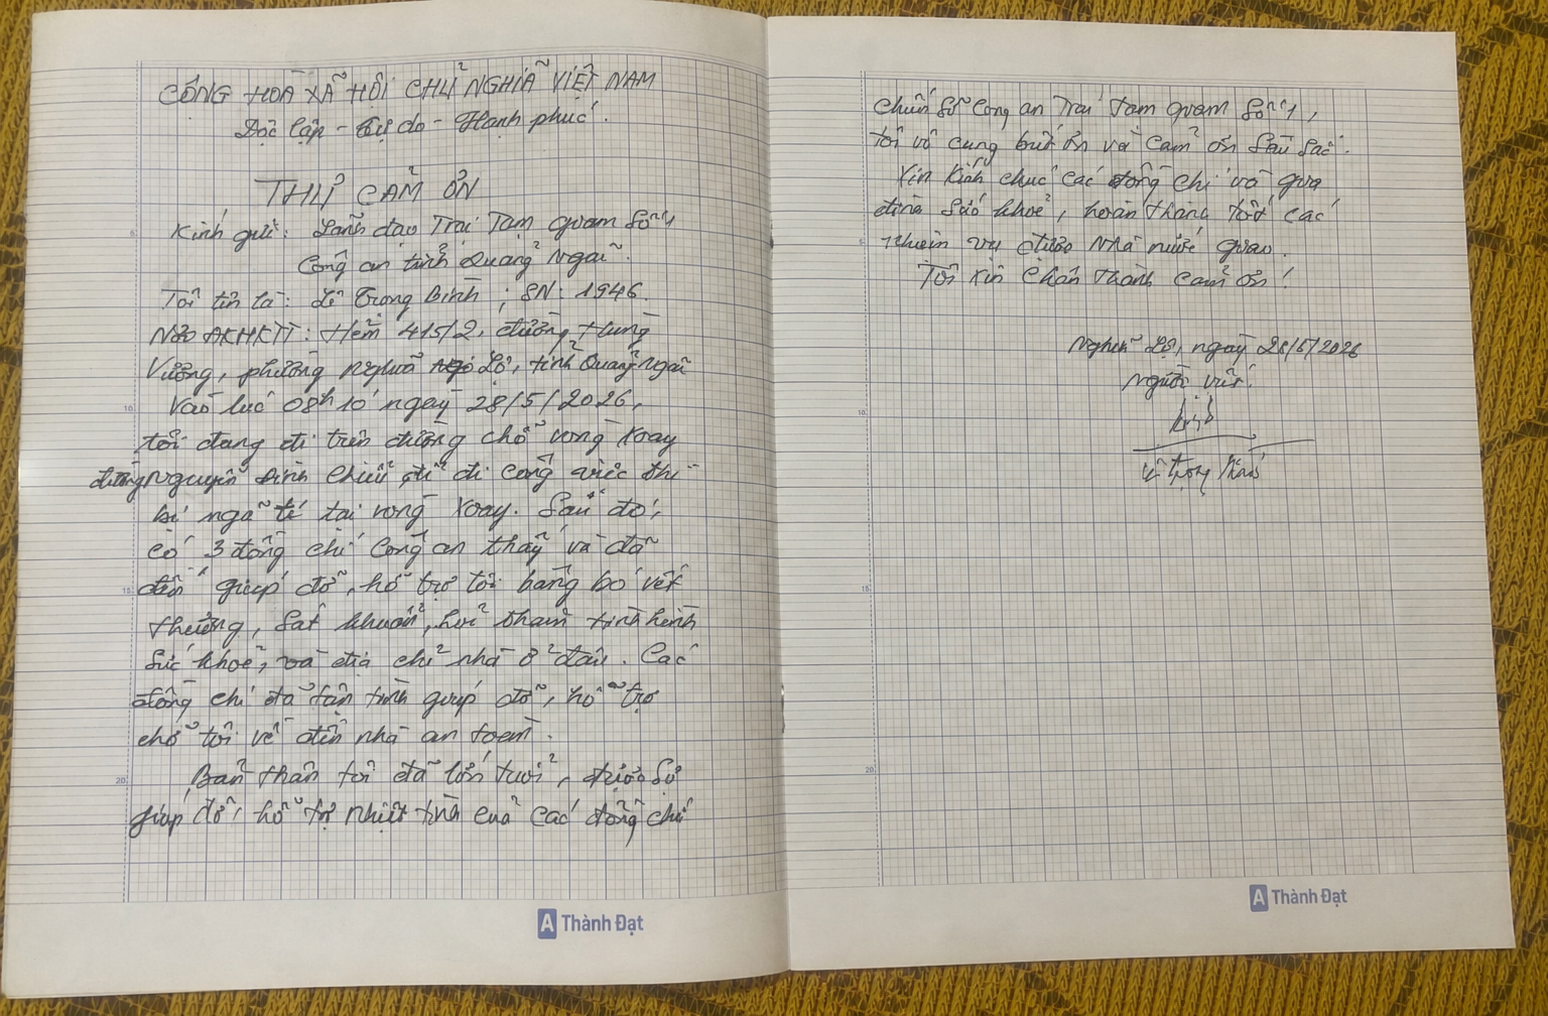 CÔNG HOÀ XÃ HỘI CHỦ NGHĨA VIỆT NAM
Độc lập - Tự do - Hạnh phúc.
THƯ CẢM ƠN
Kính gửi: Lãnh đạo Trại Tạm giam Số 1
Công an tỉnh Quảng Ngãi.
Tôi tên là: Lê Trọng Bính; SN: 1946.
Nơi ĐKHKTT: Hẻm 415/2, đường Hùng
Vương, phường Nghĩa Lộ, tỉnh Quảng Ngãi
Vào lúc 08h10 ngày 28/5/2026,
tôi đang đi trên đường chỗ vòng xoay
đường Nguyễn Đình Chiểu, để đi công việc thì
bị ngã té tại vòng xoay. Sau đó,
có 3 đồng chí Công an thấy và đã
đến giúp đỡ, hỗ trợ tôi băng bó vết
thương, sát khuẩn, hỏi thăm tình hình
sức khoẻ, và địa chỉ nhà ở đâu. Các
đồng chí đã tận tình giúp đỡ, hỗ trợ
chở tôi về đến nhà an toàn.
Bản thân tôi đã lớn tuổi, được sự
giúp đỡ, hỗ trợ nhiệt tình của các đồng chí
chiến sĩ Công an Trại tạm giam số 1,
tôi vô cùng biết ơn và cảm ơn sâu sắc.
Xin kính chúc các đồng chí và gia
đình sức khoẻ, hoàn thành tốt các
nhiệm vụ được Nhà nước giao.
Tôi xin chân thành cảm ơn!
Nghĩa Lộ, ngày 28/5/2026
Người viết
Lê Trọng Bính
A Thành Đạt
A Thành Đạt